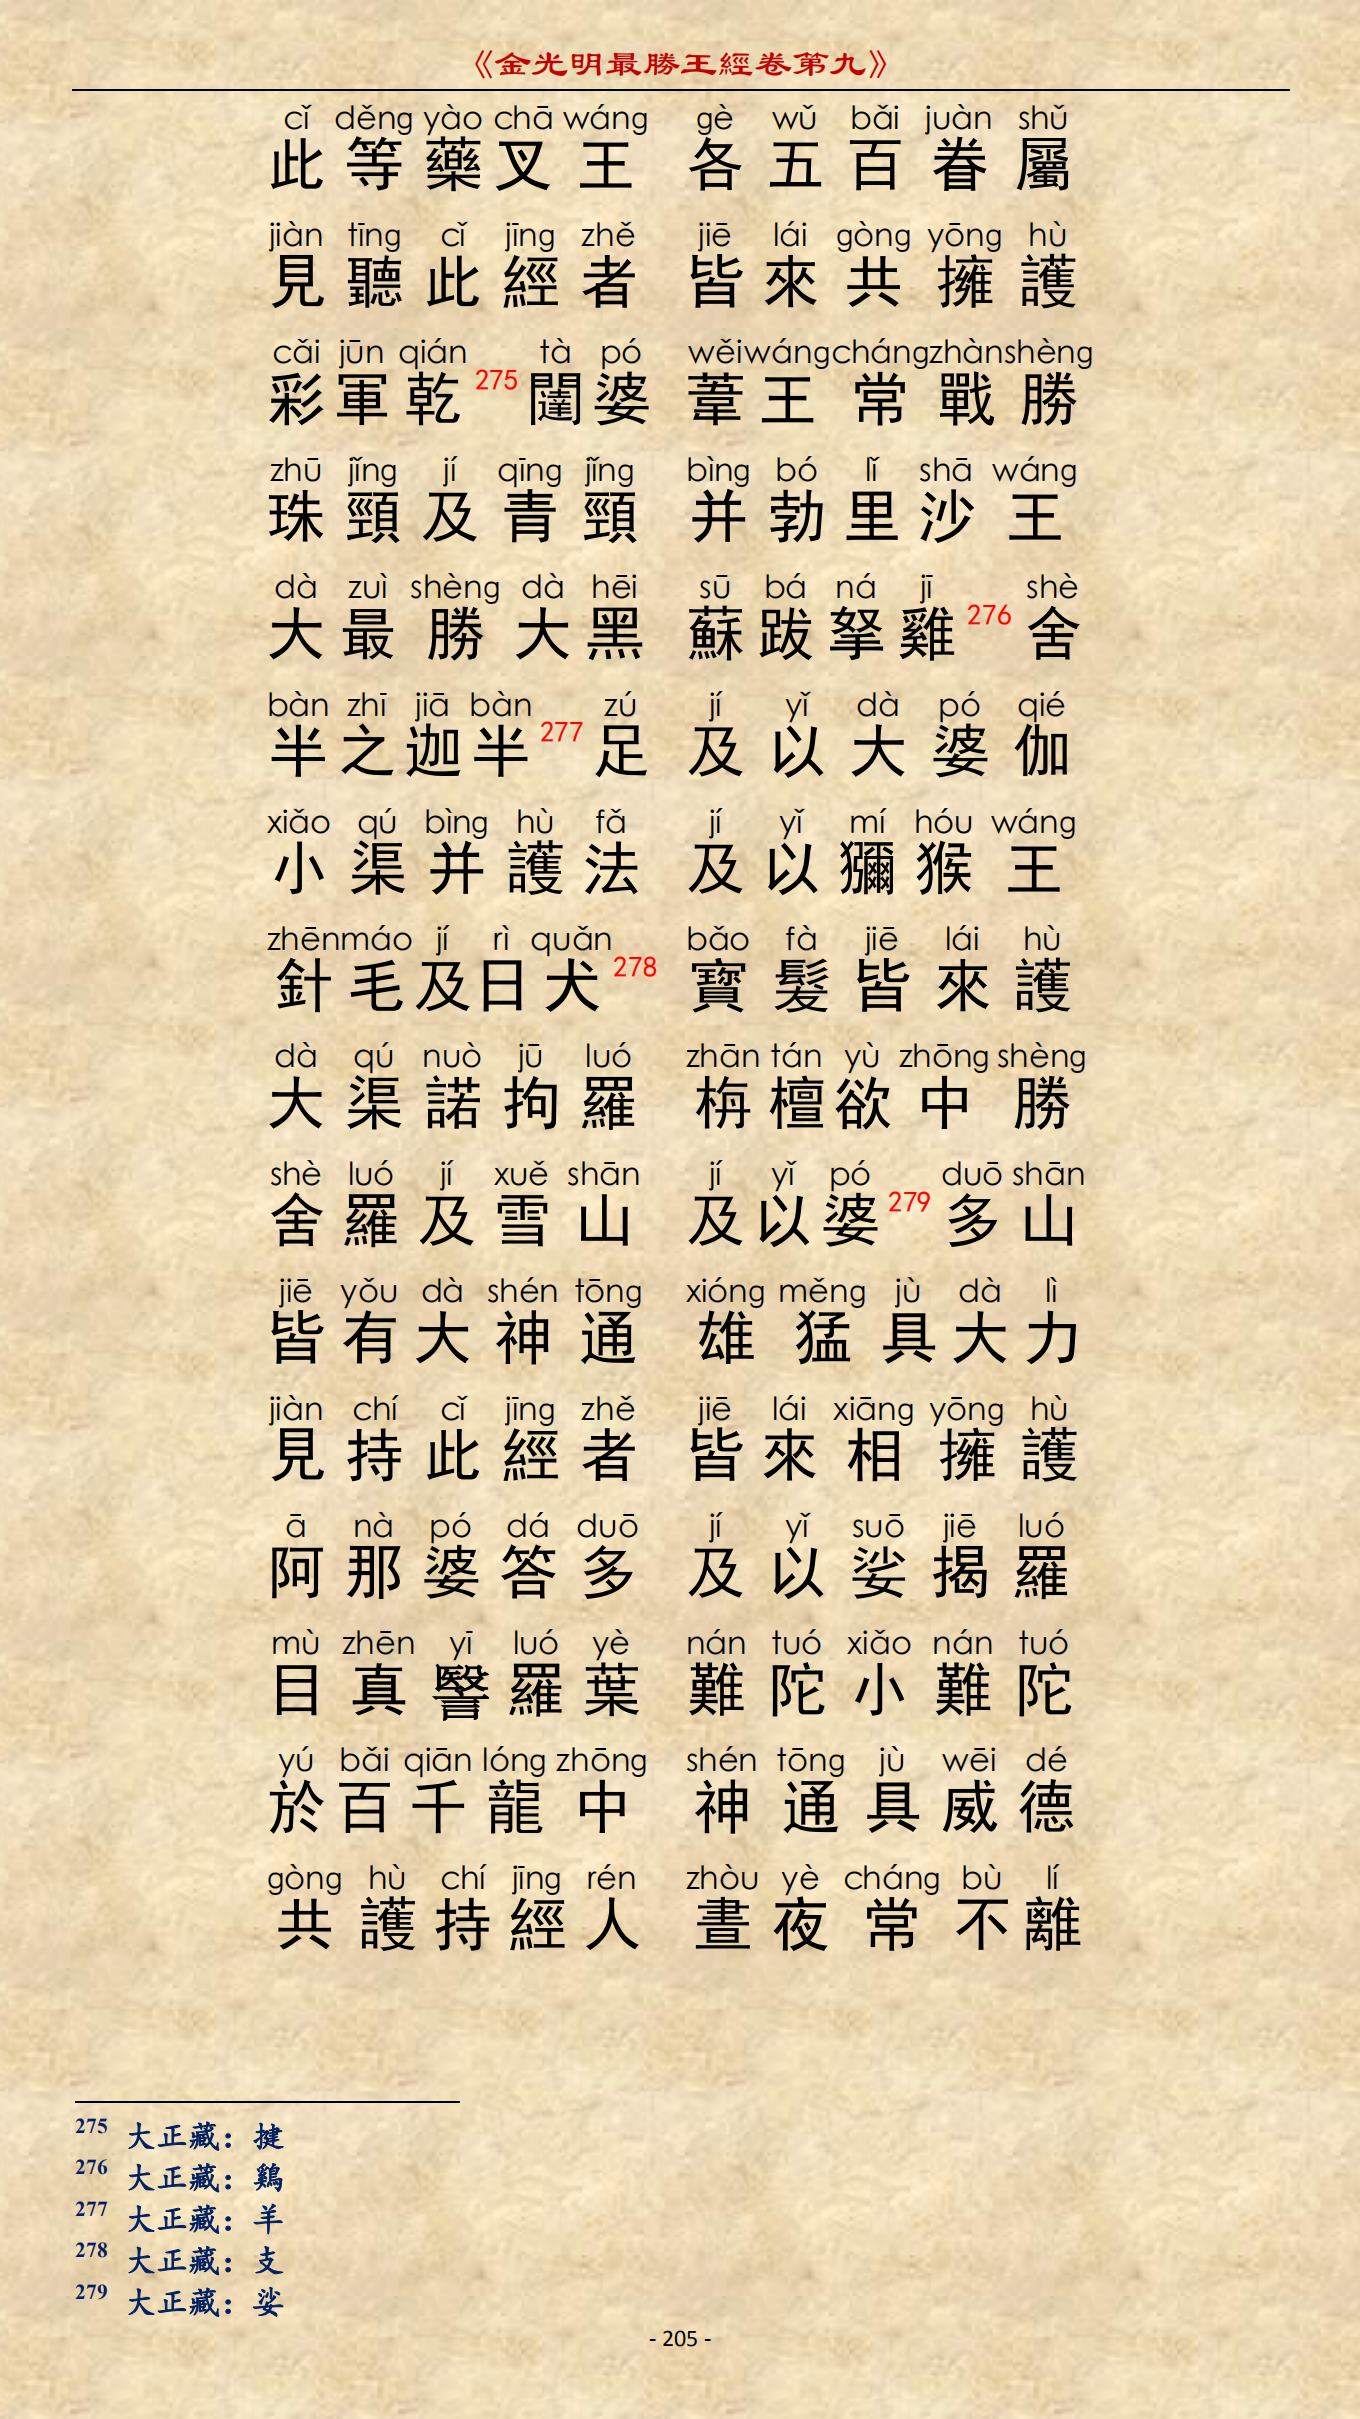 《金光明最勝王經卷第九》
cǐ děng yào chā wáng gè wǔ bǎi juàn shǔ
此等藥叉王 各五百眷屬
jiàn tīng cǐ jīng zhě jiē lái gòng yōng hù
見聽此經者 皆來共擁護
cǎi jūn qián tà pó wěi wáng cháng zhàn shèng
彩軍乾275闥婆 葦王常戰勝
zhū jǐng jí qīng jǐng bìng bó lǐ shā wáng
珠頸及青頸 并勃里沙王
dà zuì shèng dà hēi sū bá ná jī shè
大最勝大黑 蘇跋拏雞276舍
bàn zhī jiā bàn zú jí yǐ dà pó qié
半之迦半277足 及以大婆伽
xiǎo qú bìng hù fǎ jí yǐ mí hóu wáng
小渠并護法 及以獼猴王
zhēn máo jí rì quǎn bǎo fà jiē lái hù
針毛及日犬278 寶髮皆來護
dà qú nuò jū luó zhān tán yù zhōng shèng
大渠諾拘羅 栴檀欲中勝
shè luó jí xuě shān jí yǐ pó duō shān
舍羅及雪山 及以婆279多山
jiē yǒu dà shén tōng xióng měng jù dà lì
皆有大神通 雄猛具大力
jiàn chí cǐ jīng zhě jiē lái xiāng yōng hù
見持此經者 皆來相擁護
ā nà pó dá duō jí yǐ suō jiē luó
阿那婆答多 及以娑揭羅
mù zhēn yī luó yè nán tuó xiǎo nán tuó
目真瑿羅葉 難陀小難陀
yú bǎi qiān lóng zhōng shén tōng jù wēi dé
於百千龍中 神通具威德
gòng hù chí jīng rén zhòu yè cháng bù lí
共護持經人 晝夜常不離
275 大正藏：揵
276 大正藏：鷄
277 大正藏：羊
278 大正藏：支
279 大正藏：娑
- 205 -